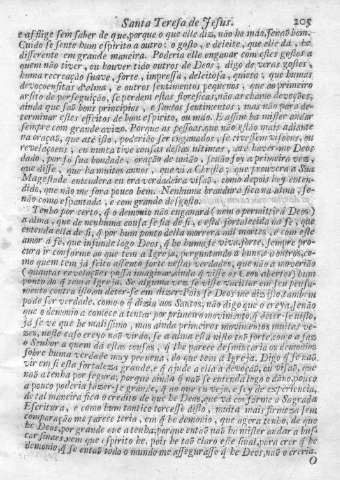 Santa Teresa de Jesus. 205
e aflige sem saber de que, porque o que elle diz, não he máo, senaõ bem.
Cuido se sente hum espirito a outro: o gosto, e deleite, que elle dá, he
differente em grande maneira. Poderia elle enganar com estes gostos a
quem não tiver, ou houver tido outros de Deos; digo de veras gostos,
huma recreação suave, forte, impressa, deleitosa, quieta; que humas
devoções d'alma, e outros sentimentos pequenos, que ao primeiro
arsito de perseguição, se perdem estas floresicas, não as chamo devações,
ainda que saõ bons principios, e santos sentimentos, mas não para de-
terminar estes effeitos de bom espirito, ou máo. E assim he mister andar
sempre com grande avizo. Porque as pessoas, que não estão mais adiante
na oração, que até isto, poderião ser enganadas, se tivessem visoens, ou
revelaçoens; eu nunca tive cousas destas ultimas, até haver-me Deos
dado, por só sua bondade, oração de união, senão foy a primeira vez,
que disse, que ha muitos annos, que vi a Christo; que prouvera a Sua
Magestade entendera eu era verdadeira visaõ, como depois hey enten-
dido, que não me fora pouco bem. Nenhuma brandura fica na alma, se-
não como espantada, e com grande desgosto.
Tenho por certo, q̃ o demonio não enganará (nem o permittirá Deos)
a alma, que de nenhuma cousa se fia de si, e está fortalecida na fé, que
entenda ella de si, q̃ por hum ponto della morrerá mil mortes, e com este
amor á fé, que infunde logo Deos, q̃ he huma fé viva, forte, sempre pro-
cura ir conforme ao que tem a Igreja, perguntando a huns, e a outros, co-
mo quem tem já feito assento forte nestas verdades, que não a moverião
(quantas revelações possa imaginar, ainda q̃ visse os Ceos abertos) hum
ponto do q̃ tem a Igreja. Se alguma vez se visse vacillar em seu pensa-
mento contra isto, ou deter-se em dizer: Pois se Deos me diz isto, tambem
pode ser verdade, como o q̃ dizia aos Santos, não digo que o crea, senão
que o demonio a comece a tentar por primeiro movimento, q̃ deter-se nisso,
já se ve que he malissimo, mas ainda primeiros movimentos muitas ve-
zes, neste caso creyo naõ viráõ, se a alma está nisto taõ forte, como a faz
o Senhor a quem dá estas cousas, q̃ lhe parece desmiuçaria os demonios
sobre huma verdade muy pequena, do que tem a Igreja. Digo q̃ se naõ
vir em si esta fortaleza grande, e q̃ ajude a ella a devoção, ou visaõ, que
naõ a tenha por segura, porque ainda q̃ naõ se entenda logo o dano, pouco
a pouco poderia fazer-se grande, q̃ ao que eu vejo, e sey de experiencia,
de tal maneira fica o credito de que he Deos, que vá conforme a Sagrada
Escritura, e como hum tantico torcesse disso, muita mais firmeza sem
comparação me parece teria, em q̃ he demonio, que agora tenho, de que
he Deos, por grande que a tenha, porque entaõ naõ he mister andar a bus-
car sinaes, nem que espirito he, pois he taõ claro esse sinal, para crer q̃ he
demonio, q̃ se entaõ todo o mundo me assegurasse q̃ he Deos, naõ o creria.
O